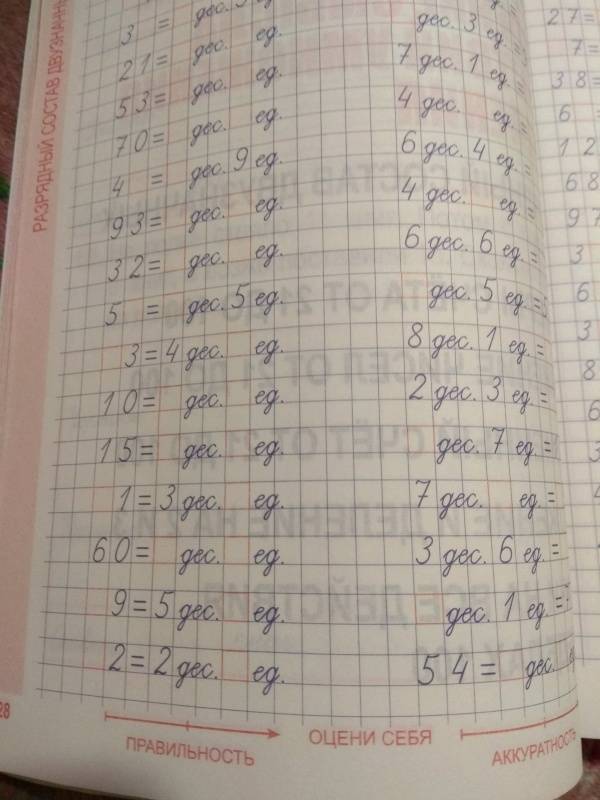 РАЗРЯДНЫЙ СОСТАВ
3 = дес. ед. дес. 3 ед. 27=
21= дес. ед. 7 дес. 1 ед. = 7=
53= дес. ед. 4 дес. ед. = 38
70= дес. ед. 6 дес. 4 ед. = 6
4 = дес. 9 ед. 4 дес. ед. = 12
93= дес. ед. 6 дес. 6 ед. = 68
32= дес. ед. дес. 5 ед. = 97
5 = дес. 5 ед. 8 дес. 1 ед. = 3
3=4 дес. ед. 2 дес. 3 ед. = 6
10= дес. ед. дес. 7 ед. = 3
15= дес. ед. 7 дес. ед. = 8
1=3 дес. ед. 3 дес. 6 ед. = 6
60= дес. ед. дес. 1 ед. = 3
9=5 дес. ед. 54= дес.
2=2 дес. ед.
28
ПРАВИЛЬНОСТЬ ОЦЕНИ СЕБЯ АККУРАТНОСТЬ